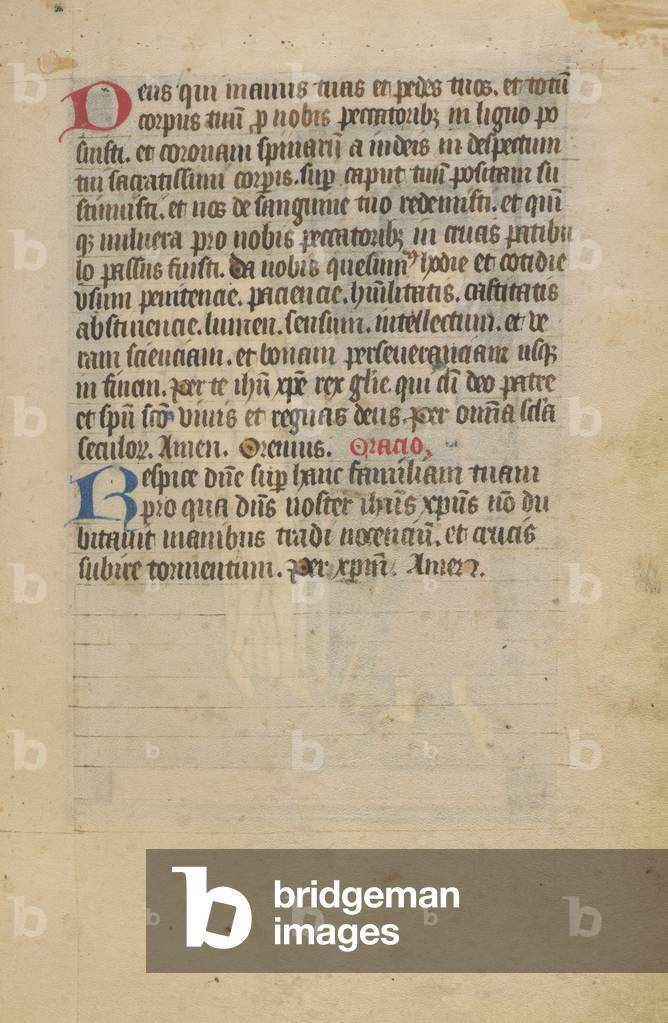 Deus qui manus tuas et pedes tuos. et totū
corpus tuū ꝑ nobis peccatoribꝫ in ligno po
suisti. et coronam spinarū a iudeis in despectum
tui sacratissimi corpis. sup caput tuū positam su
stinuisti. et nos de sanguine tuo redemisti. et quin
qꝫ uulnera pro nobis peccatoribꝫ in crucis patibu
lo passus fuisti. Da nobis quesumꝰ hodie et cotidie
vsum penitencie. paciencie. hūilitatis. castitatis
abstinencie. lumen. sensum. intellectum. et ve
ram scienciam. et bonam perseueranciam usqꝫ
in finem. Per te ihū xpē rex glīe. qui cū deo patre
et spū scō viuis et regnas deus. per omnia scła
seculoꝝ. Amen. Oremus. Oracio.
Respice dn̄e sup hanc familiam tuam
pro qua dn̄s noster ihūs xpūs nō du
bitauit manibus tradi nocenciū. et crucis
subire tormentum. Per xpm̄. Amen.
bridgeman
images